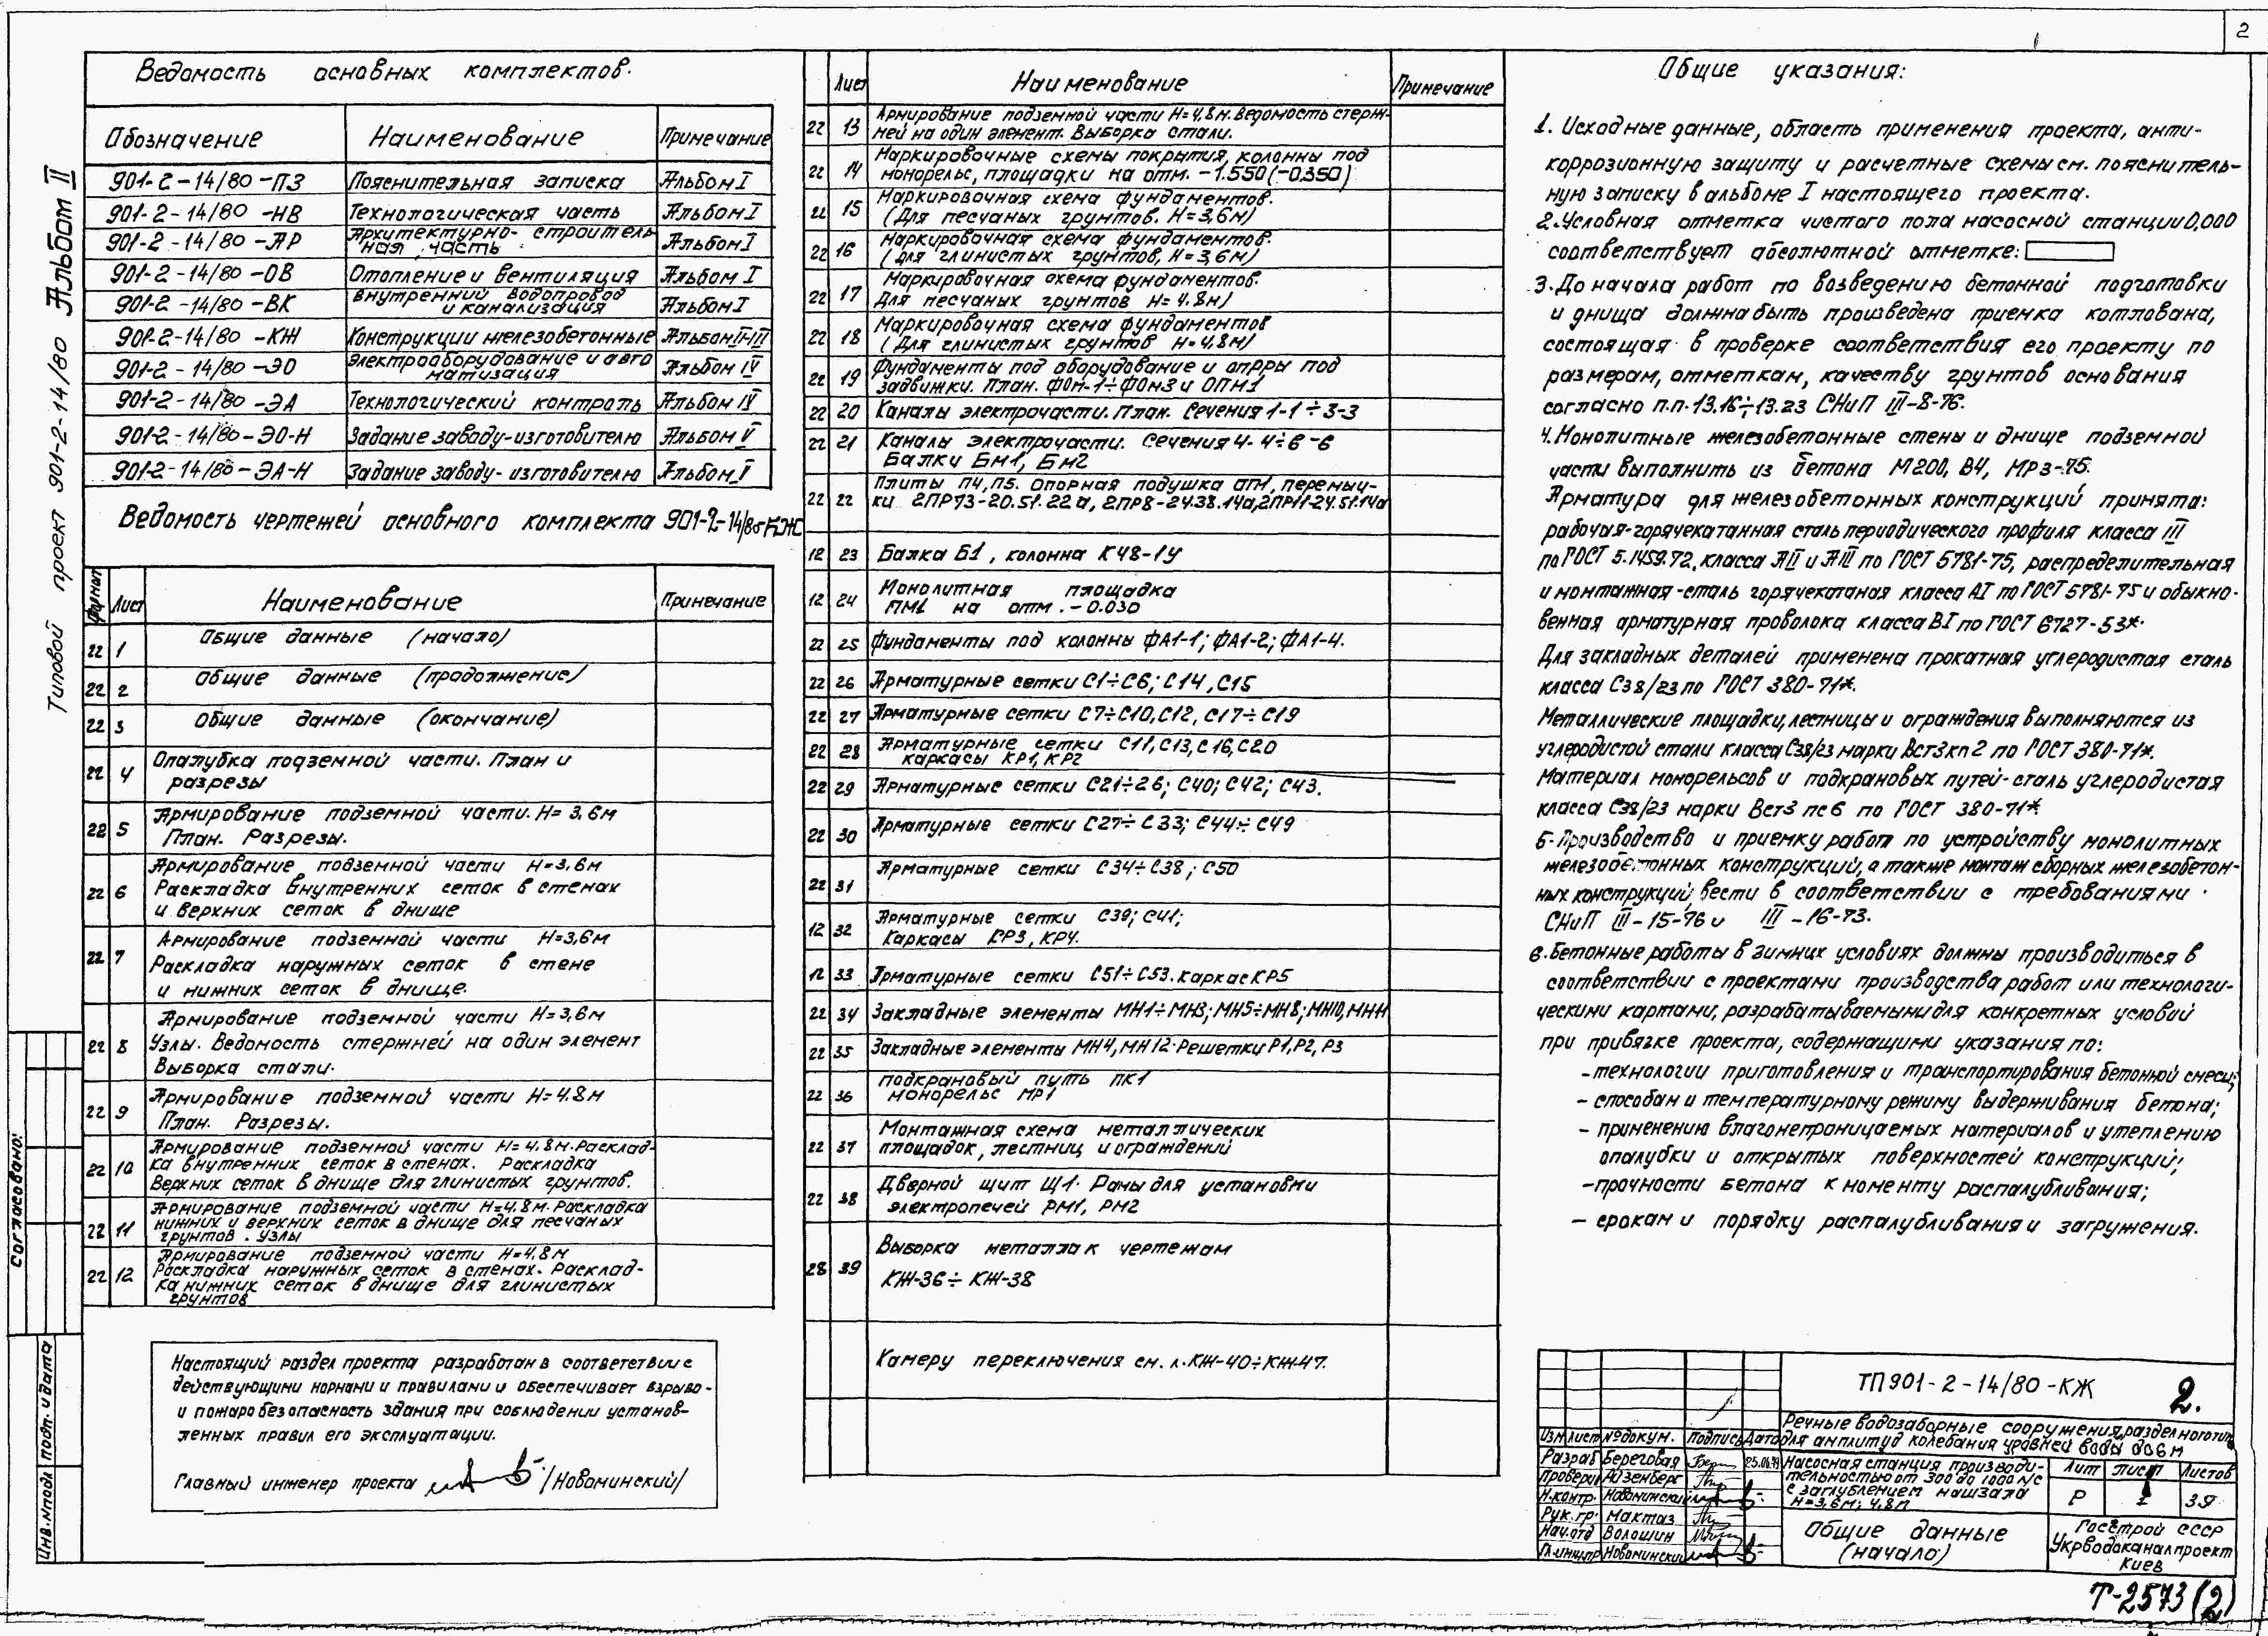 2
Типовой проект 901-2-14/80 Альбом II
Ведомость основных комплектов.
Обозначение Наименование Примечание
901-2-14/80-ПЗ Пояснительная записка Альбом I
901-2-14/80-НВ Технологическая часть Альбом I
901-2-14/80-АР Архитектурно-строитель
ная часть Альбом I
901-2-14/80-ОВ Отопление и вентиляция Альбом I
901-2-14/80-ВК Внутренний водопровод
и канализация Альбом I
901-2-14/80-КЖ Конструкции железобетонные Альбом II-III
901-2-14/80-ЭО Электрооборудование и авто
матизация Альбом IV
901-2-14/80-ЭА Технологический контроль Альбом IV
901-2-14/80-ЭО-Н Задание заводу-изготовителю Альбом V
901-2-14/80-ЭА-Н Задание заводу-изготовителю Альбом V
Ведомость чертежей основного комплекта 901-2-14/80-КЖ
Формат Лист Наименование Примечание
22 1 Общие данные (начало)
22 2 Общие данные (продолжение)
22 3 Общие данные (окончание)
22 4 Опалубка подземной части. План и
разрезы
22 5 Армирование подземной части. Н=3,6м
План. Разрезы.
22 6 Армирование подземной части Н=3,6м
Раскладка внутренних сеток в стенах
и верхних сеток в днище
22 7 Армирование подземной части Н=3,6м
Раскладка наружных сеток в стене
и нижних сеток в днище.
22 8 Армирование подземной части Н=3,6м
Узлы. Ведомость стержней на один элемент
Выборка стали.
22 9 Армирование подземной части Н=4.8м
План. Разрезы.
22 10 Армирование подземной части Н=4.8м. Расклад-
ка внутренних сеток в стенах. Раскладка
верхних сеток в днище для глинистых грунтов.
22 11 Армирование подземной части Н=4.8м. Раскладка
нижних и верхних сеток в днище для песчаных
грунтов. Узлы
22 12 Армирование подземной части Н=4,8м
Раскладка наружных сеток в стенах. Расклад-
ка нижних сеток в днище для глинистых
грунтов
Настоящий раздел проекта разработан в соответствии с
действующими нормами и правилами и обеспечивает взрыво-
и пожаробезопасность здания при соблюдении установ-
ленных правил его эксплуатации.
Главный инженер проекта /Новоминский/
Согласовано:
Инв.№подл Подп. и дата
Лист Наименование Примечание
22 13 Армирование подземной части Н=4.8м. Ведомость стерж-
ней на один элемент. Выборка стали.
22 14 Маркировочные схемы покрытия, колонны под
монорельс, площадки на отм. -1.550(-0.350)
22 15 Маркировочная схема фундаментов.
(Для песчаных грунтов. Н=3,6м)
22 16 Маркировочная схема фундаментов.
(для глинистых грунтов, Н=3,6м)
22 17 Маркировочная схема фундаментов.
Для песчаных грунтов Н=4.8м)
22 18 Маркировочная схема фундаментов
(Для глинистых грунтов Н=4,8м)
22 19 Фундаменты под оборудование и опоры под
задвижки. План. ФОм-1÷ФОм3 и ОПМ1
22 20 Каналы электрочасти. План. Сечения 1-1÷3-3
22 21 Каналы электрочасти. Сечения 4-4÷6-6
Балки БМ1, БМ2
22 22 Плиты П4,П5. Опорная подушка ОП1, перемыч-
ки 2ПР73-20.51.22а, 2ПР8-24.38.14а, 2ПР11-24.51.14а
12 23 Балка Б1, колонна К48-1У
12 24 Монолитная площадка
ПМ1 на отм. -0.030
22 25 Фундаменты под колонны ФА1-1; ФА1-2; ФА1-4.
22 26 Арматурные сетки С1÷С6; С14, С15
22 27 Арматурные сетки С7÷С10, С12, С17÷С19
22 28 Арматурные сетки С11, С13, С16, С20
каркасы КР1, КР2
22 29 Арматурные сетки С21÷26; С40; С42; С43.
22 30 Арматурные сетки С27÷С33; С44÷С49
22 31 Арматурные сетки С34÷С38; С50
12 32 Арматурные сетки С39; С41;
Каркасы КР3, КР4.
12 33 Арматурные сетки С51÷С53. Каркас КР5
22 34 Закладные элементы МН1÷МН3; МН5÷МН8; МН10, МН11
22 35 Закладные элементы МН4, МН12. Решетки Р1, Р2, Р3
22 36 Подкрановый путь ПК1
монорельс МР1
22 37 Монтажная схема металлических
площадок, лестниц и ограждений
22 38 Дверной щит Щ1. Рамы для установки
электропечей РМ1, РМ2
28 39 Выборка металла к чертежам
КЖ-36÷КЖ-38
Камеру переключения см. л. КЖ-40÷КЖ-47.
Общие указания:
1. Исходные данные, область применения проекта, анти-
коррозионную защиту и расчетные схемы см. пояснитель-
ную записку в альбоме I настоящего проекта.
2. Условная отметка чистого пола насосной станции 0,000
соответствует абсолютной отметке:
3. До начала работ по возведению бетонной подготовки
и днища должна быть произведена приемка котлована,
состоящая в проверке соответствия его проекту по
размерам, отметкам, качеству грунтов основания
согласно п.п. 13.16÷13.23 СНиП III-8-76.
4. Монолитные железобетонные стены и днище подземной
части выполнить из бетона М200, В4, МРЗ-75.
Арматура для железобетонных конструкций принята:
рабочая-горячекатанная сталь периодического профиля класса III
по ГОСТ 5.1459.72, класса АII и АIII по ГОСТ 5781-75, распределительная
и монтажная-сталь горячекатаная класса АI по ГОСТ 5781-75 и обыкно-
венная арматурная проволока класса ВI по ГОСТ 6727-53*.
Для закладных деталей применена прокатная углеродистая сталь
класса С38/23 по ГОСТ 380-71*.
Металлические площадки, лестницы и ограждения выполняются из
углеродистой стали класса С38/23 марки Вст3кп2 по ГОСТ 380-71*.
Материал монорельсов и подкрановых путей-сталь углеродистая
класса С38/23 марки Вст3 пс6 по ГОСТ 380-71*.
5. Производство и приемку работ по устройству монолитных
железобетонных конструкций, а также монтаж сборных железобетон-
ных конструкций, вести в соответствии с требованиями
СНиП III-15-76 и III-16-73.
6. Бетонные работы в зимних условиях должны производиться в
соответствии с проектами производства работ или технологи-
ческими картами, разрабатываемыми для конкретных условий
при привязке проекта, содержащими указания по:
-технологии приготовления и транспортирования бетонной смеси;
- способам и температурному режиму выдерживания бетона;
- применению влагонепроницаемых материалов и утеплению
опалубки и открытых поверхностей конструкций;
-прочности бетона к моменту распалубливания;
- срокам и порядку распалубливания и загружения.
ТП901-2-14/80-КЖ 2.
Речные водозаборные сооружения, раздельного типа
для амплитуд колебания уровней воды до 6м
Изм Лист №докум. Подпись Дата
Разраб Береговая 25.06.79
Проверил Айзенберг
Н.контр. Новоминский
Рук.гр. Мактаз
Нач.отд Волошин
Гл.инж.пр Новоминский
Насосная станция производи-
тельностью от 300 до 1000 л/с
с заглублением машзала
Н=3,6м; 4.8м
Лит Лист Листов
Р 1 39
Общие данные
(начало)
Госстрой СССР
Укрводоканалпроект
Киев
Т-2573(2)